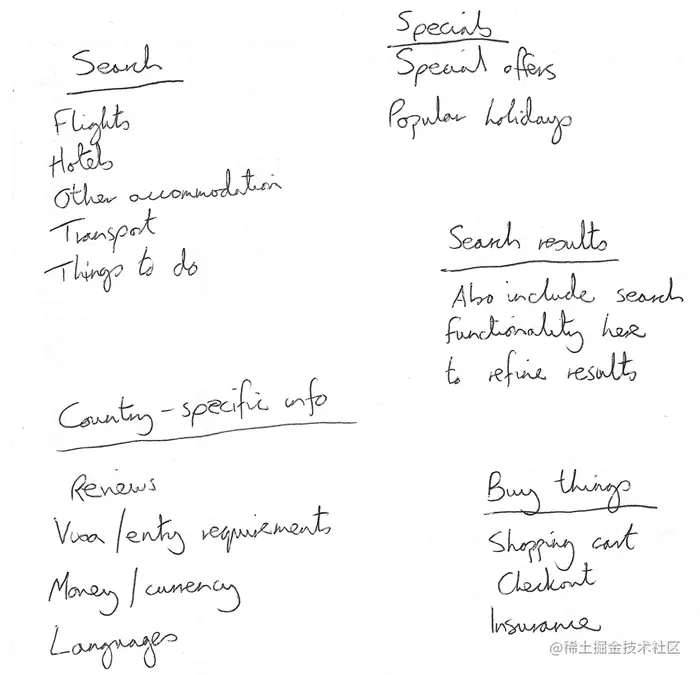 Search
Flights
Hotels
Other accommodation
Transport
Things to do
Specials
Special offers
Popular holidays
Search results
Also include search
functionality here
to refine results
Country-specific info
Reviews
Visa/entry requirements
Money/currency
Languages
Buy things
Shopping cart
Checkout
Insurance
@稀土掘金技术社区